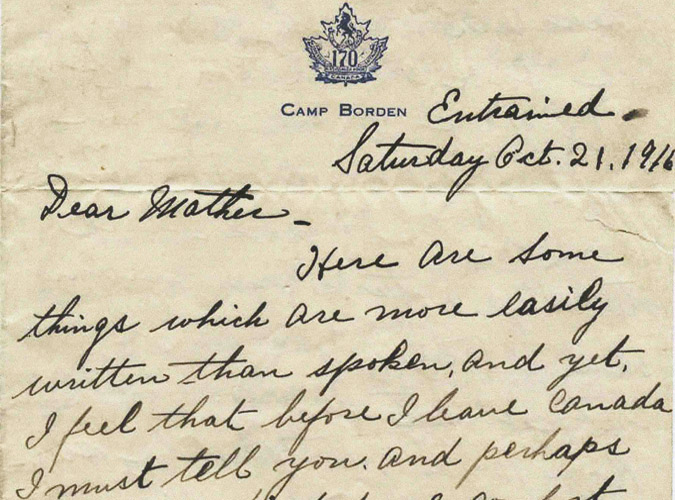 170
CANADA
CAMP BORDEN Entrained.
Saturday Oct. 21. 1916
Dear Mother -
Here are some
things which are more easily
written than spoken, and yet,
I feel that before I leave Canada
I must tell you. and perhaps